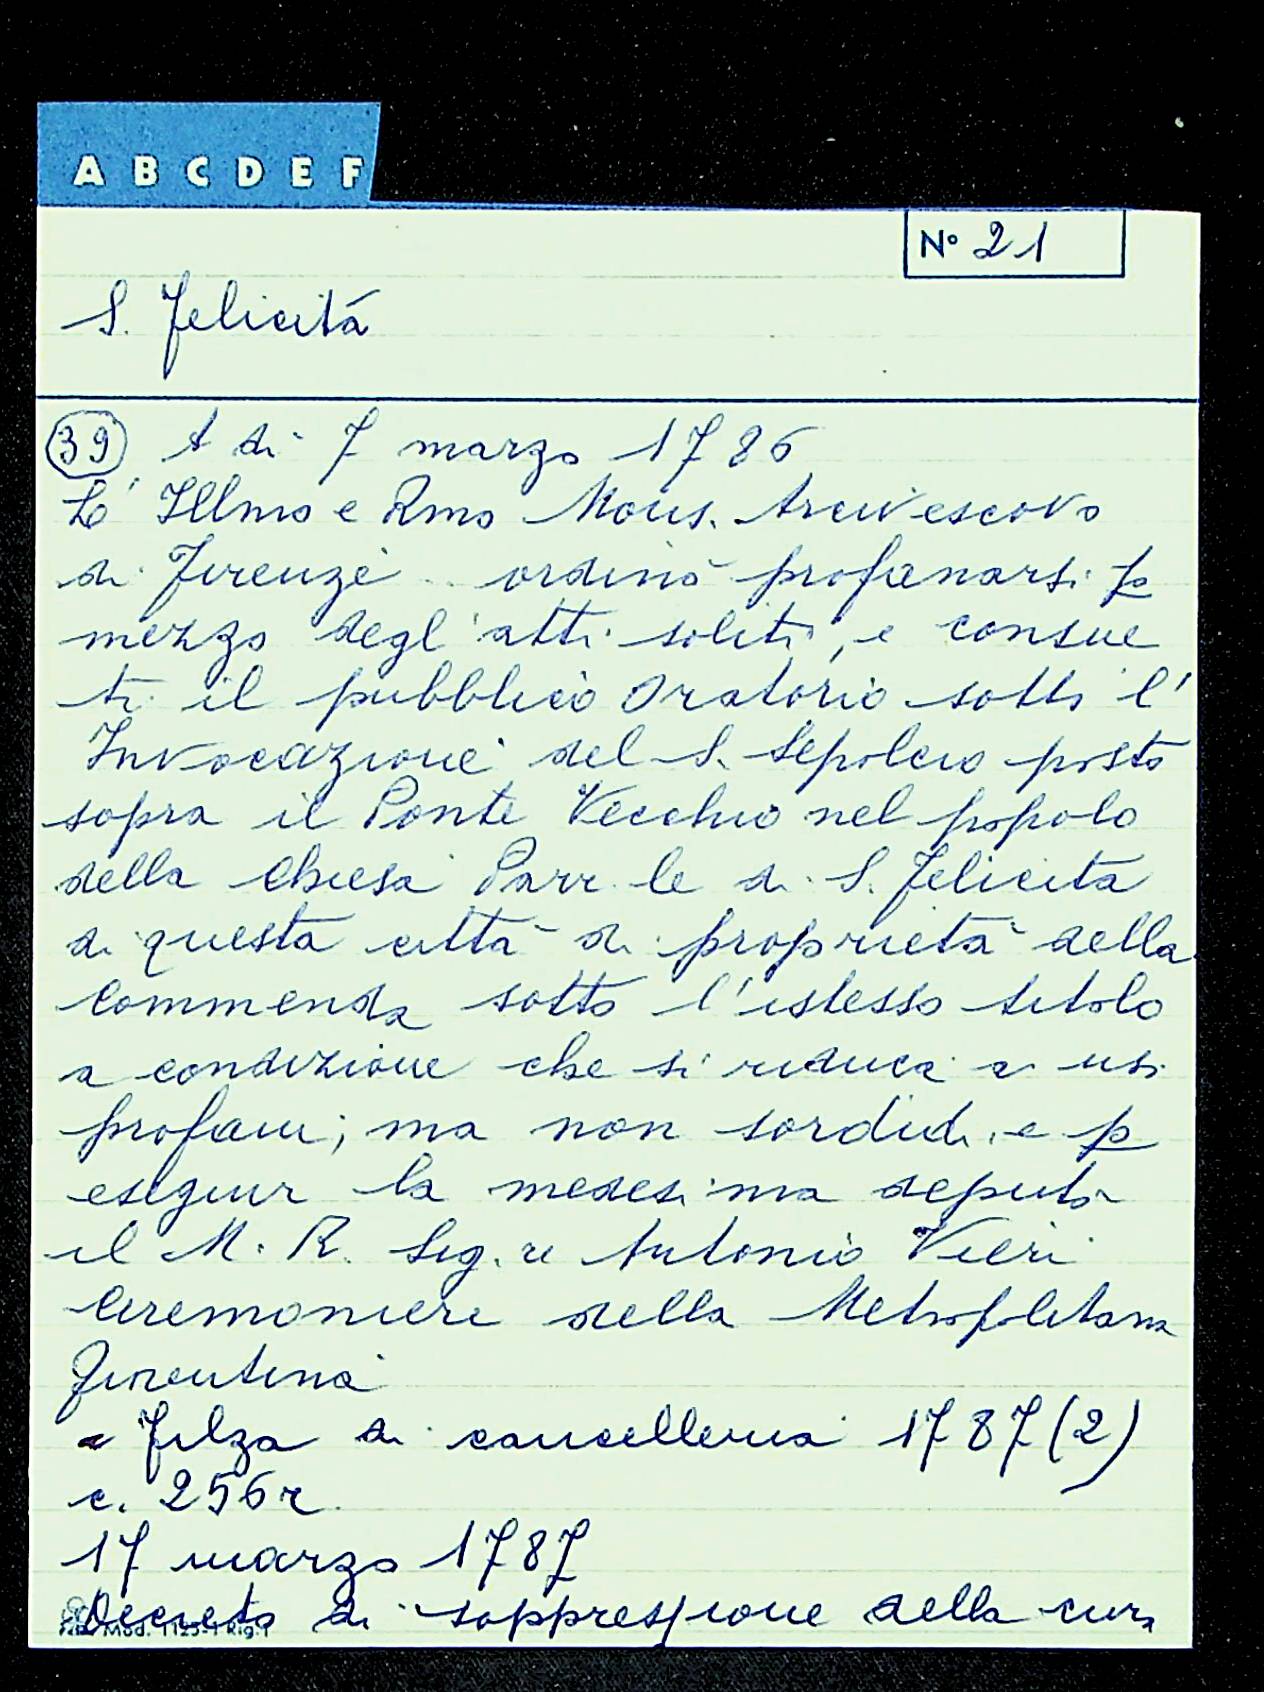 A B C D E F
N° 21
S. Felicitá
39 A di 7 marzo 1786
L' Illmo e Rmo Mons. Arcivescovo
di Firenze ordinò profanarsi p
mezzo degl'atti soliti, e consue
ti il pubblico Oratorio sotto l'
Invocazione del S. Sepolcro posto
sopra il Ponte Vecchio nel popolo
della Chiesa Parr.le di S. Felicita
di questa città di proprietà della
Commenda sotto l'istesso titolo
a condizione che si riduca a usi
profani; ma non sordidi, e p
eseguir la medesima deputò
il M. R. Sig.re Antonio Vieri
Ceremoniere della Metropolitana
Fiorentina
Filza di cancelleria 1787 (2)
c. 256r.
17 marzo 1787
Decreto di soppressione della cura
Mod. 1125-1 Rig. 1